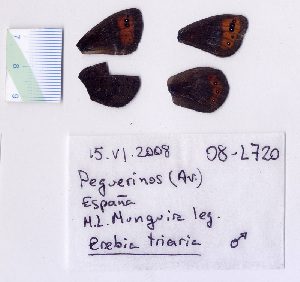 7
8
9
15.VI.2008 08-L720
Peguerinos (Av.)
España
M.L. Munguira leg.
Erebia triaria ♂